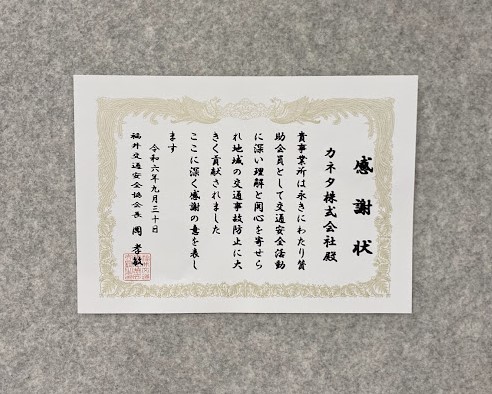 感謝状
カネタ株式会社殿
貴事業所は永きにわたり賛
助会員として交通安全活動
に深い理解と関心を寄せら
れ地域の交通事故防止に大
きく貢献されました
ここに深く感謝の意を表し
ます
令和六年九月三十日
福井交通安全協会長 岡 孝敏